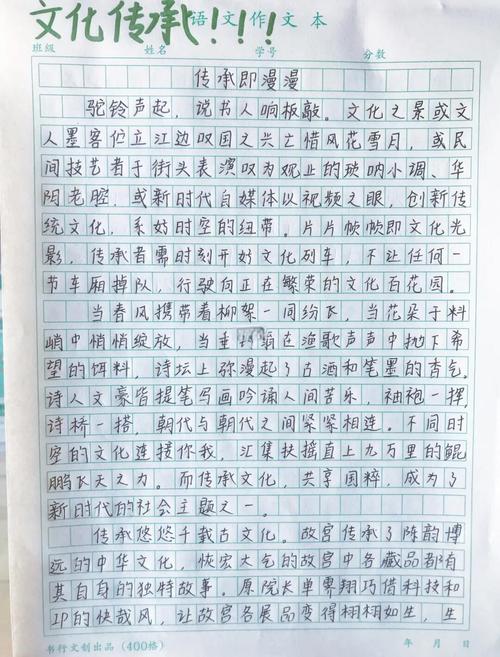 文化传承!!!
语文作文本
班级 姓名 学号 分数
传承即漫漫
驼铃声起，说书人响板敲。文化之景或文
人墨客伫立江边叹国之兴亡惜风花雪月，或民
间技艺者于街头表演叹为观止的琐呐小调、华
阴老腔，或新时代自媒体以视频之眼，创新传
统文化，系好时空的纽带。片片帧帧即文化光
影，传承者需时刻开好文化列车，不让任何一
节车厢掉队，行驶向正在繁荣的文化百花园。
当春风携带着柳絮一同纷飞，当花朵于料
峭中悄悄绽放，当 在渔歌声声中抛下希
望的饵料，诗坛上弥漫起了古酒和笔墨的香气。
诗人文豪皆提笔写画吟诵人间苦乐，袖袍一挥，
诗桥一搭，朝代与朝代之间紧紧相连。不同时
空的文化连接你我，汇集扶摇直上九万里的鲲
鹏飞天之力。而传承文化，共享国粹，成为了
新时代的社会主题之一。
传承悠悠千载古文化。故宫传承了陈韵博
远的中华文化，恢宏大气的故宫中各藏品都有
其自身的独特故事。原院长单霁翔巧借科技和
IP的快哉风，让故宫各展品变得栩栩如生，生
书行文创出品（400格） 年 月 日